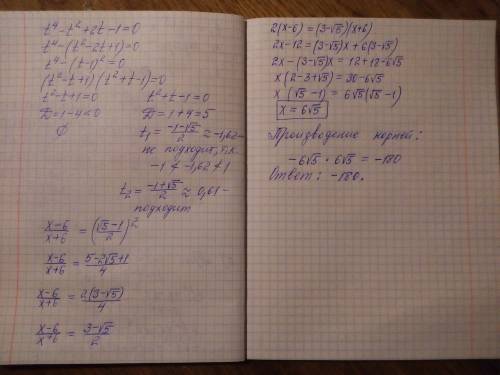 t⁴-t²+2t-1=0
t⁴-(t²-2t+1)=0
t⁴-(t-1)²=0
(t²-t+1)(t²+t-1)=0
t²-t+1=0 t²+t-1=0
D=1-4<0 D=1+4=5
∅ t₁=(-1-√5)/2≈-1,62-
не подходит, т.к.
-1≮-1,62≮1
t₂=(-1+√5)/2≈0,61-
подходит
(x-6)/(x+6)=((√5-1)/2)²
(x-6)/(x+6)=(5-2√5+1)/4
(x-6)/(x+6)=2(3-√5)/4
(x-6)/(x+6)=(3-√5)/2
2(x-6)=(3-√5)(x+6)
2x-12=(3-√5)x+6(3-√5)
2x-(3-√5)x=12+18-6√5
x(2-3+√5)=30-6√5
x(√5-1)=6√5(√5-1)
x=6√5
Произведение корней:
-6√5·6√5=-180
Ответ: -180.